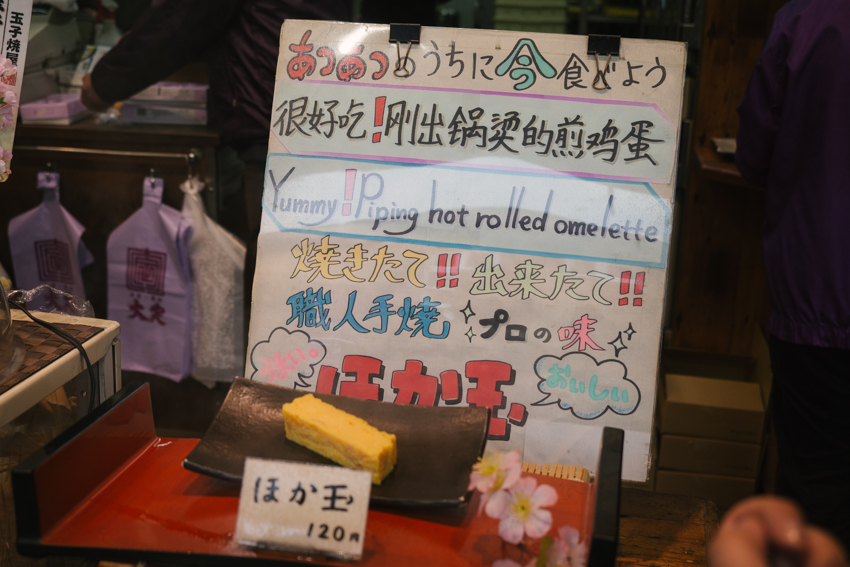 玉子焼屋
あつあつのうちに今食べよう
很好吃！刚出锅烫的煎鸡蛋
Yummy! Piping hot rolled omelette
焼きたて!! 出来たて!!
職人手焼 プロの味
ほか玉
おいしい
ほか玉
120円